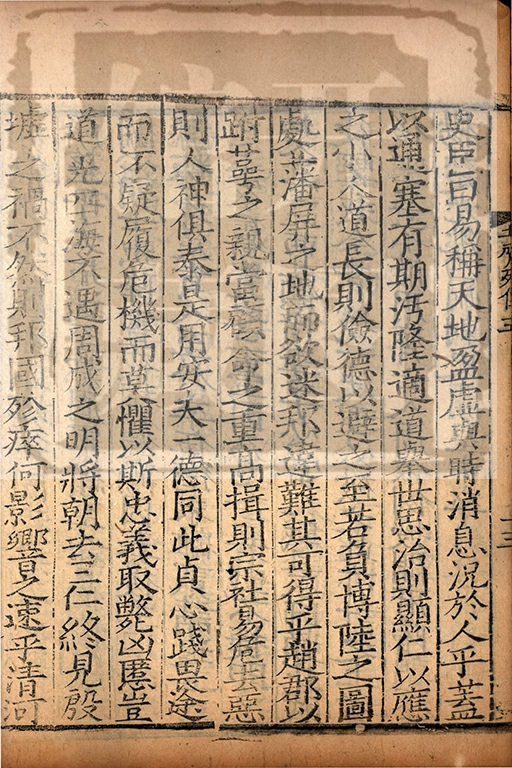 史臣曰易稱天地盈虛與時消息況於人乎蓋
以通塞有期汚隆適道舉世思治則顯仁以應
之小人道長則儉德以避之至若負博陸之圖
處藩屏之地而欲迷邦違難其可得乎趙郡以
跗萼之親當顧命之重高揖則宗社易危去惡
則人神俱泰是用安夫一德同此貞心踐畏途
而不疑履危機而莫懼以斯忠義取斃凶慝豈
道光四海不遇周成之明將朝去三仁終見殷
墟之禍不然則邦國殄瘁何影響之速乎清河